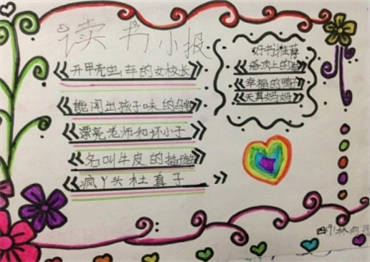 读书小报
《开甲壳虫车的女校长》
《能闻出孩子味的乌
《漂亮老师和坏小子》
《名叫牛皮的插班
《疯丫头杜真子》
好书推荐
《塔顶上的
《幸福的鸭子
《天真妈妈》